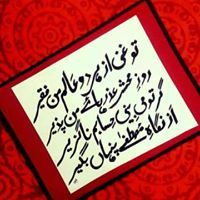 تو غنی از ہر دو عالم من فقیر
روز محشر عذر ہائے من پذیر
گر تو می بینی حسابم ناگزیر
از نگاہ مصطفیٰ پنہاں بگیر